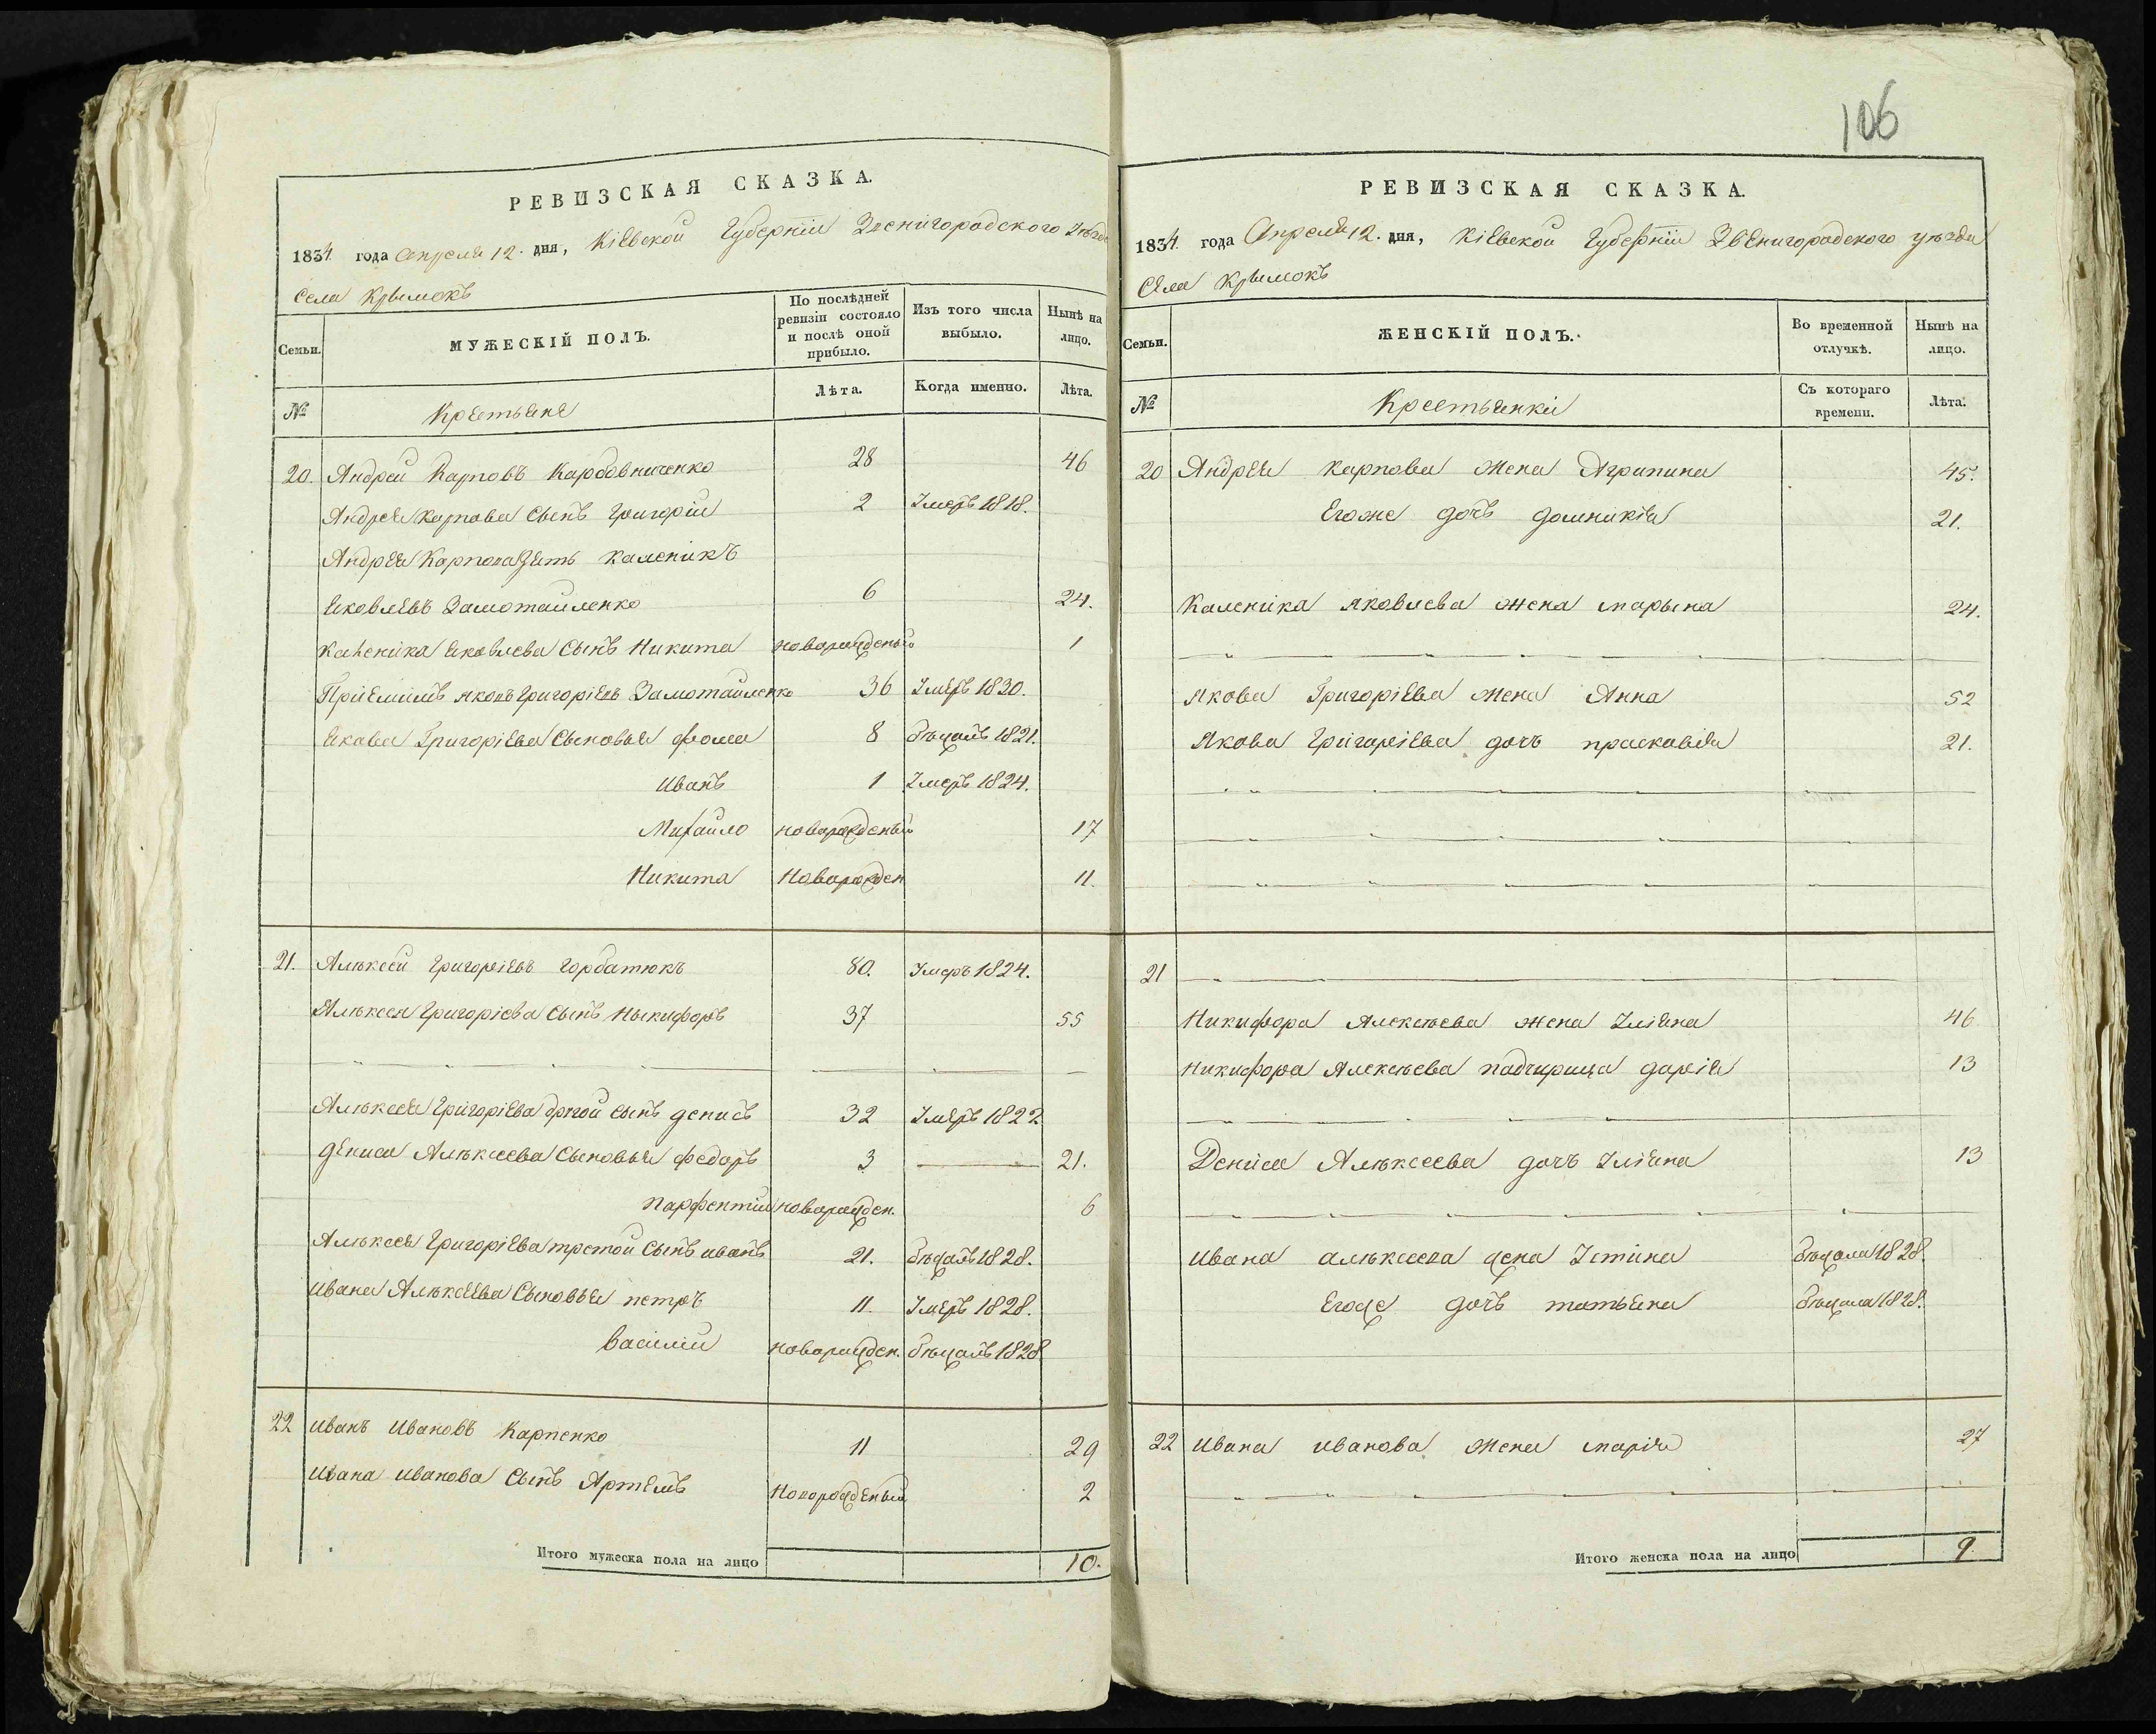 106
РЕВИЗСКАЯ СКАЗКА.
1834 года Апреля 12. дня, Кіевской Губерніи Звенигородского Уѣзда
Села Крымокъ
Семьи.
МУЖЕСКІЙ ПОЛЪ.
По послѣдней ревизіи состояло и послѣ оной прибыло.
Изъ того числа выбыло.
Нынѣ на лицо.
№
Крестьяне
Лѣта.
Когда именно.
Лѣта.
20. Андрей Карповъ Карбовниченко 28 46
Андрея Карпова Сынъ Григорій 2 Умеръ 1818.
Андрея Карпова Зять Каленикъ
Яковлевъ Замотайленко 6 24.
Каленика Яковлева Сынъ Никита новорожденый 1
Пріемышъ Яковъ Григоріевъ Замотайленко 36 Умеръ 1830.
Якова Григоріева Сыновья фома 8 бѣжалъ 1821.
Иванъ 1 Умеръ 1824.
Михайло новорожденый 17
Никита Новорожден 11.
21. Алѣксей Григоріевъ Горбатюкъ 80. Умеръ 1824.
Алѣксея Григоріева Сынъ Ныкифоръ 37 55
Алѣксея Григоріева другой сынъ денисъ 32 Умеръ 1822
дениса Алѣксеева Сыновья федоръ 3 21.
Парфентий новорожден. 6
Алѣксея Григоріева третой Сынъ иванъ 21. бѣжалъ 1828.
ивана Алѣксеева Сыновья петръ 11. Умеръ 1828.
василий новорожден. бѣжалъ 1828
22 Иванъ Ивановъ Карпенко 11 29
Ивана Иванова Сынъ Артемъ Новорожденый 2
Итого мужеска пола на лицо 10.
РЕВИЗСКАЯ СКАЗКА.
1834. года Апреля 12. дня, Кіевской Губерніи Звенигородского уѣзда
Села Крымокъ
Семьи.
ЖЕНСКІЙ ПОЛЪ.
Во временной отлучкѣ.
Нынѣ на лицо.
№
Крестьянки
Съ котораго времени.
Лѣта.
20 Андрея Карпова Жена Агрипина 45.
Егоже дочъ домникія 21.
Каленика Яковлева жена марьяна 24.
Якова Григоріева жена Анна 52
Якова Григоріева дочъ прасковія 21.
21
Никифора Алексѣева жена Уліяна 46
Никифора Алексѣева падчирица дарія 13
Дениса Алѣксеева дочъ Уліяна 13
Ивана алѣксеева жена Устина бѣжала 1828.
Егоже дочъ татьяна бѣжала 1828.
22 Ивана Иванова Жена марія 27
Итого женска пола на лицо 9.